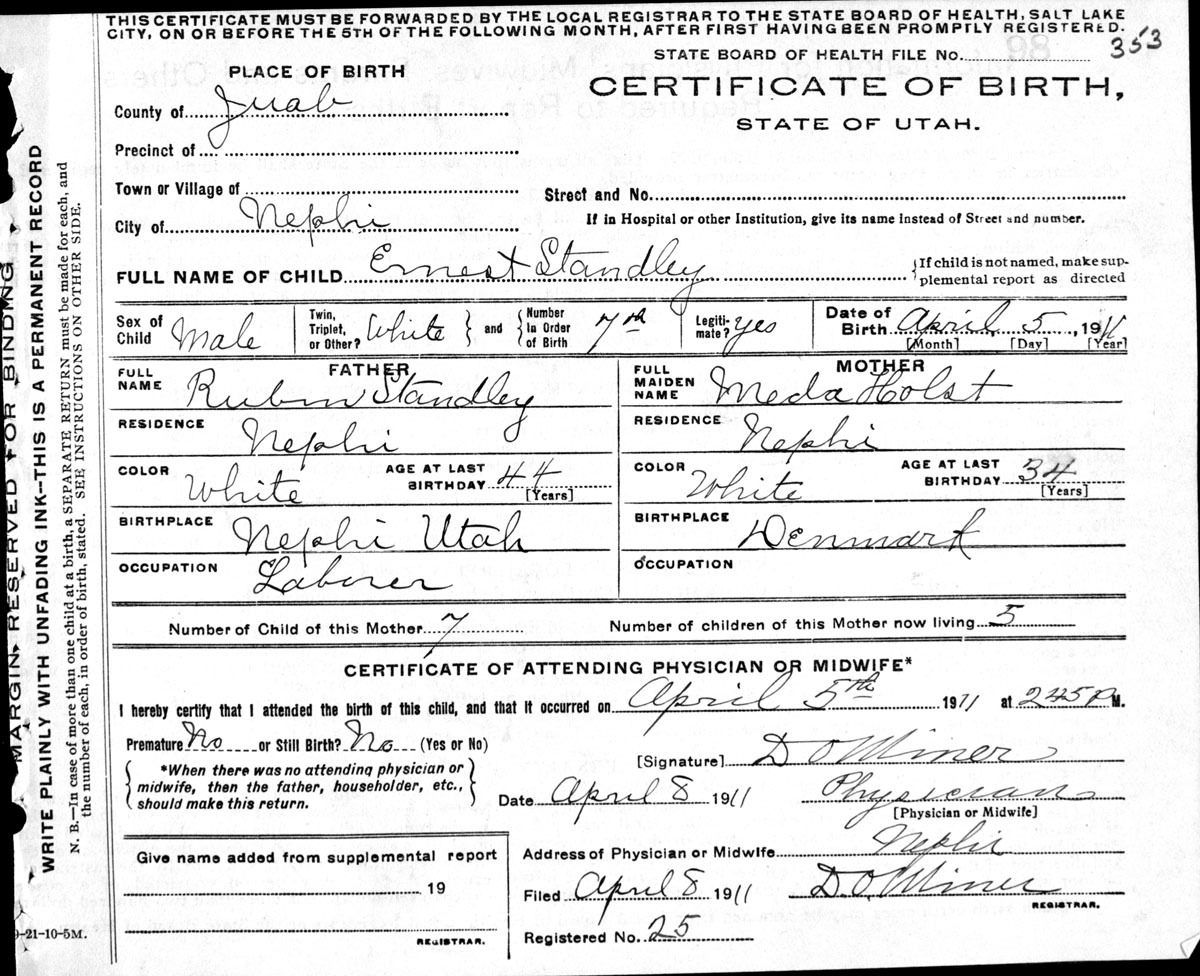 THIS CERTIFICATE MUST BE FORWARDED BY THE LOCAL REGISTRAR TO THE STATE BOARD OF HEALTH, SALT LAKE
CITY, ON OR BEFORE THE 5TH OF THE FOLLOWING MONTH, AFTER FIRST HAVING BEEN PROMPTLY REGISTERED.
353
STATE BOARD OF HEALTH FILE No.
PLACE OF BIRTH
CERTIFICATE OF BIRTH,
STATE OF UTAH.
County of Juab
Precinct of
Town or Village of
Street and No.
City of Nephi
If in Hospital or other Institution, give its name Instead of Street and number.
FULL NAME OF CHILD Ernest Standley
{If child is not named, make sup-
plemental report as directed
Sex of Child Male
Twin, Triplet, or Other? White } and { Number In Order of Birth 7th
Legiti- mate? yes
Date of Birth April 5, 1911
[Month] [Day] [Year]
FATHER
FULL NAME Rubin Standley
RESIDENCE Nephi
COLOR White AGE AT LAST BIRTHDAY 44 [Years]
BIRTHPLACE Nephi Utah
OCCUPATION Laborer
MOTHER
FULL MAIDEN NAME Meda Holst
RESIDENCE Nephi
COLOR White AGE AT LAST BIRTHDAY 34 [Years]
BIRTHPLACE Denmark
OCCUPATION
Number of Child of this Mother 7 Number of children of this Mother now living 5
CERTIFICATE OF ATTENDING PHYSICIAN OR MIDWIFE*
I hereby certify that I attended the birth of this child, and that it occurred on April 5th 1911 at 245 P M.
Premature No or Still Birth? No (Yes or No)
{ *When there was no attending physician or
midwife, then the father, householder, etc.,
should make this return. }
[Signature] D O Miner
Date April 8 1911 Physician
[Physician or Midwife]
Give name added from supplemental report
19
REGISTRAR.
Address of Physician or Midwife Nephi
Filed April 8 1911 D. O. Miner
REGISTRAR.
Registered No. 25
9-21-10-5M.
MARGIN RESERVED FOR BINDING
WRITE PLAINLY WITH UNFADING INK--THIS IS A PERMANENT RECORD
N. B.—In case of more than one child at a birth, a SEPARATE RETURN must be made for each, and
the number of each, in order of birth, stated. SEE INSTRUCTIONS ON OTHER SIDE.